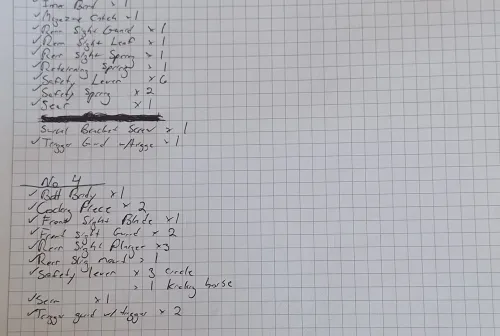 ✓ Inner Band × 1
✓ Magazine Catch × 1
✓ Rear Sight Guard × 1
✓ Rear Sight Leaf × 1
✓ Rear Sight Spring × 1
✓ Retaining Spring × 1
✓ Safety Lever × 6
✓ Safety Spring × 2
✓ Sear × 1
Swivel Screw × 1
✓ Trigger Guard × 1
No 4
✓ Bolt Body × 1
✓ Cocking Piece × 2
✓ Front Sight Blade × 1
✓ Front Sight Guard × 2
✓ Rear Sight Plunger × 3
✓ Rear Sling mount × 1
✓ Safety lever × 3 circle
× 1 kicking horse
✓ Sear × 1
✓ Trigger guard w/ trigger × 2